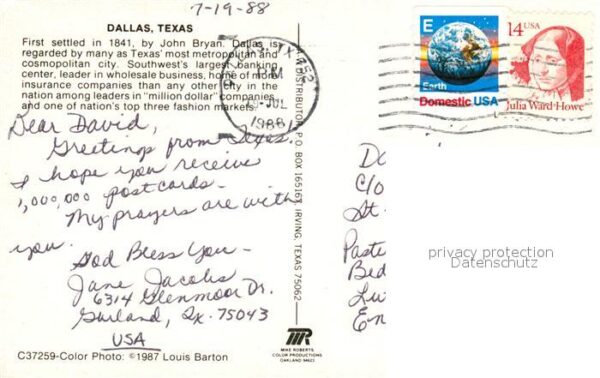 7-19-88
DALLAS, TEXAS
First settled in 1841, by John Bryan. Dallas is
regarded by many as Texas' most metropolitan and
cosmopolitan city. Southwest's largest banking
center, leader in wholesale business, home of more
insurance companies than any other city in the
nation among leaders in "million dollar" companies
and one of nation's top three fashion markets.
Dear David,
Greetings from Texas.
I hope you receive
1,000,000 postcards.
My prayers are with
you.
God Bless You -
Jane Jacobs
6314 Glenmoor Dr.
Garland, Tx. 75043
USA
C37259-Color Photo: ©1987 Louis Barton
TX 752
PM
JUL
1988
DISTRIBUTOR, P.O. BOX 165167, IRVING, TEXAS 75062
MR
MIKE ROBERTS
COLOR PRODUCTIONS
OAKLAND 94623
E
Earth
Domestic USA
14 USA
Julia Ward Howe
c/o
St.
privacy protection
Datenschutz